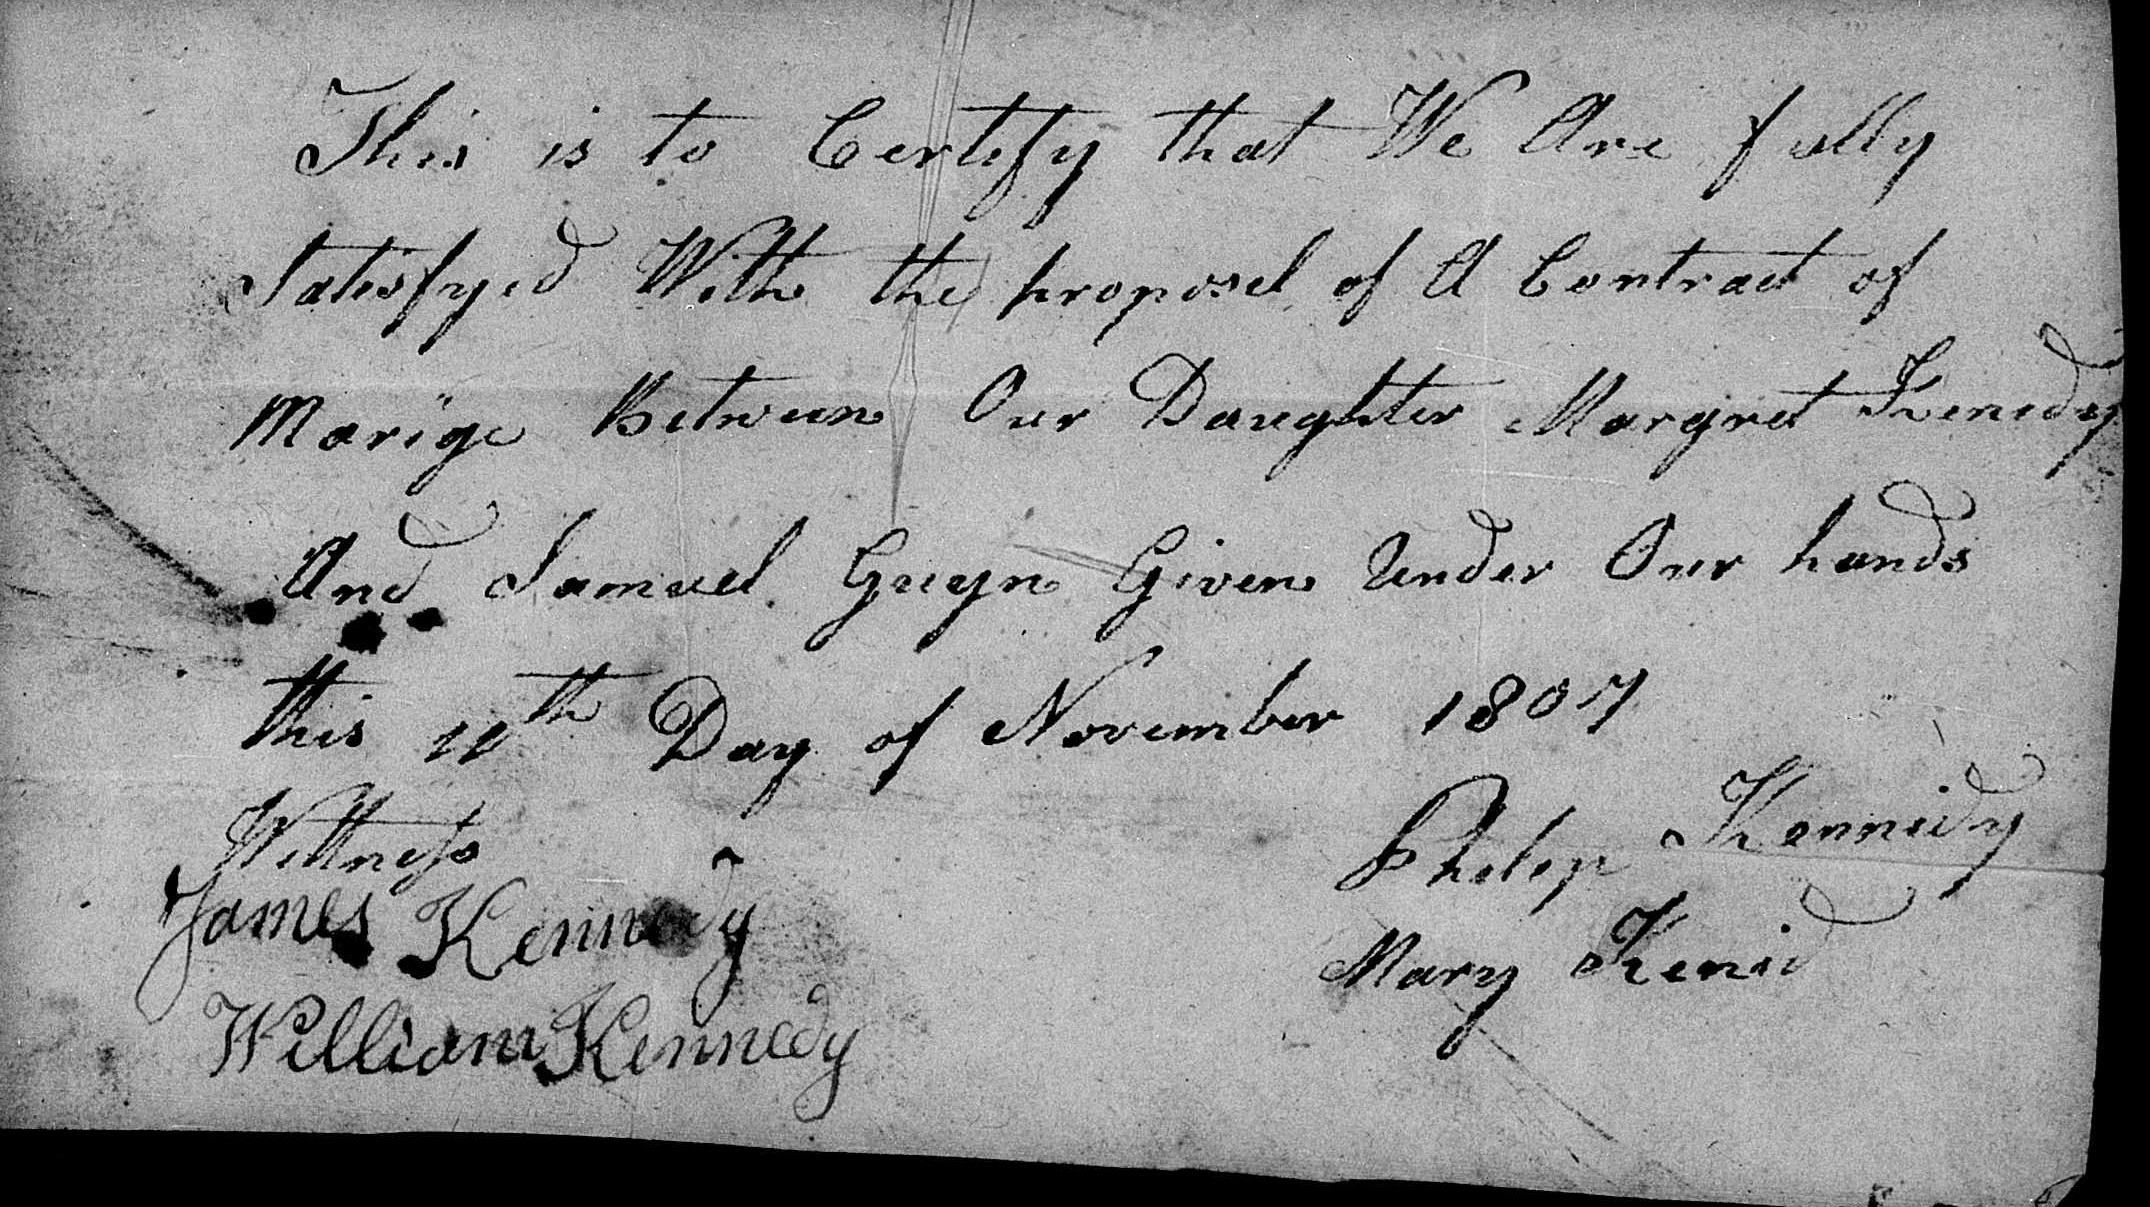 This is to Certefy that We Are fully
Satisfyed With the proposel of A Contract of
Marige Between Our Daughter Margret Kenedy
And Samuel Guyn Given Under Our hands
this 10th Day of November 1807
Wittness
Philip Kennedy
James Kennedy
Mary Kenid
William Kennedy